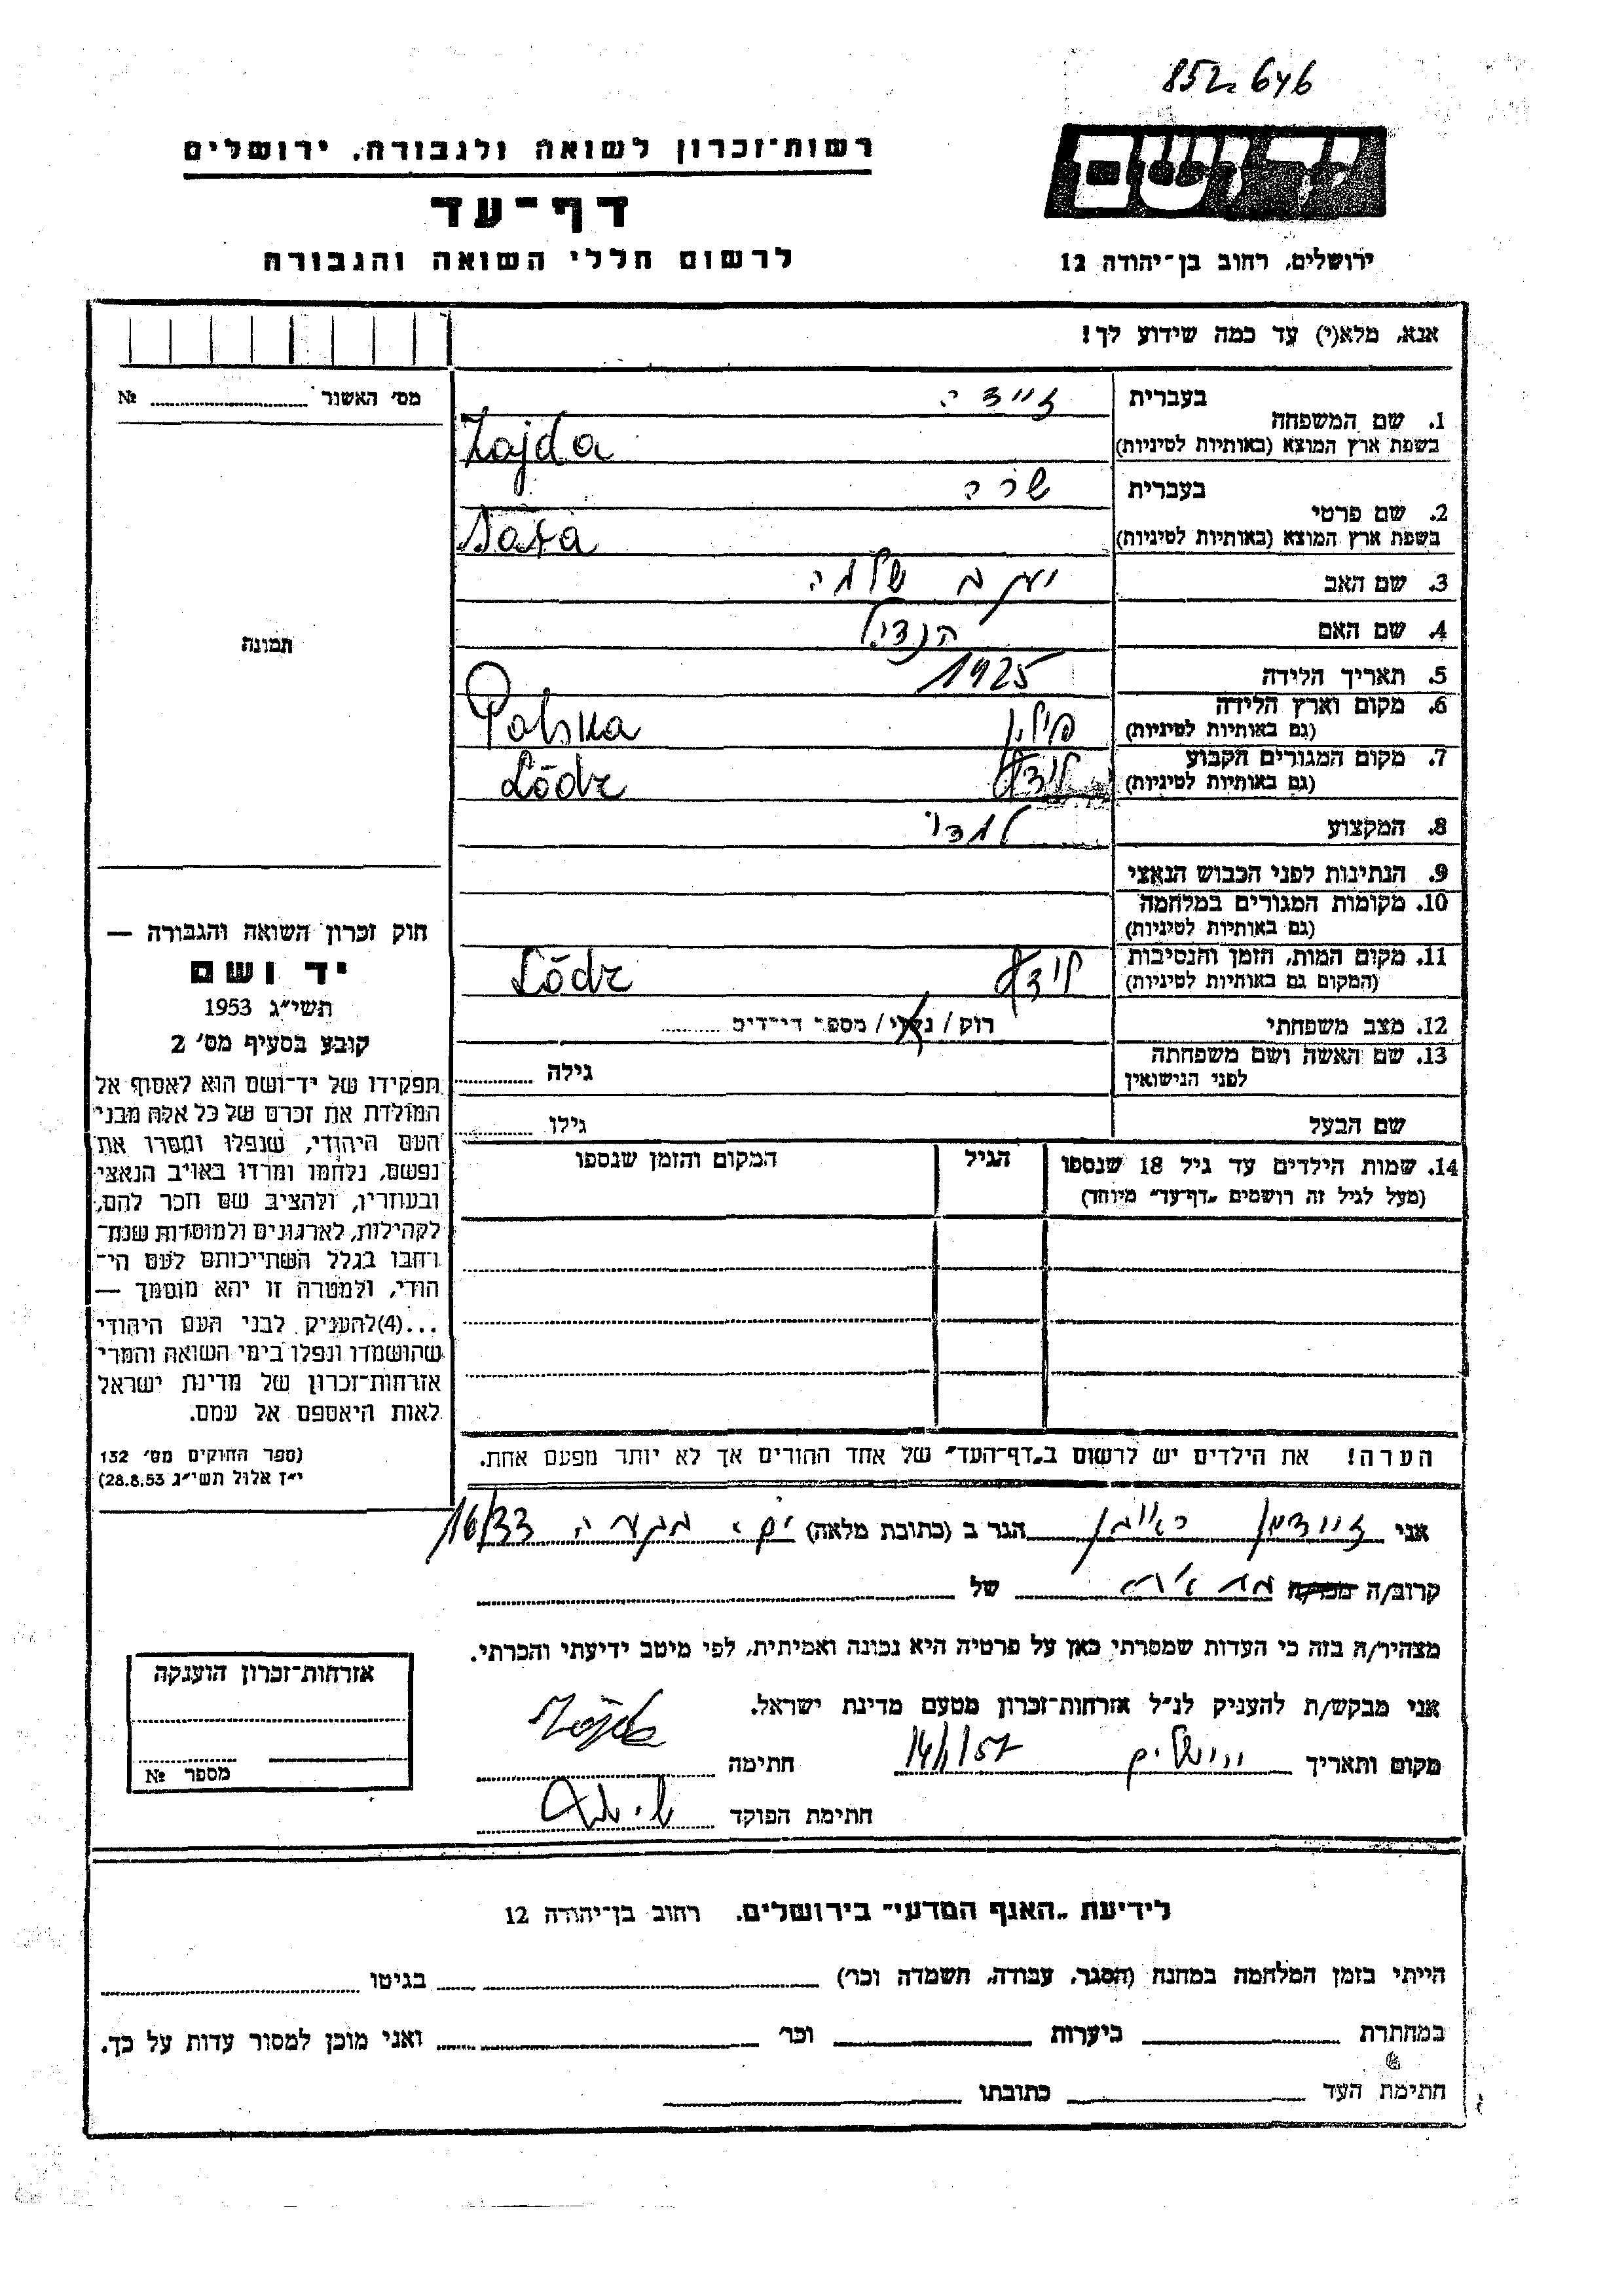 852.646
יד ושם
רשות־זכרון לשואה ולגבורה, ירושלים
דף־עד
לרשום חללי השואה והגבורה
ירושלים, רחוב בן־יהודה 12
אנא, מלא(י) עד כמה שידוע לך!
מס' האשור № ........
תמונה
בעברית זיידה
1. שם המשפחה
בשפת ארץ המוצא (באותיות לטיניות) Zajda
בעברית שרה
2. שם פרטי
בשפת ארץ המוצא (באותיות לטיניות) Sara
3. שם האב יעקב שלמה
4. שם האם הנדיל
5. תאריך הלידה 1925
6. מקום וארץ הלידה
(גם באותיות לטיניות) פולין Polska
7. מקום המגורים הקבוע
(גם באותיות לטיניות) לודז' Lódz
8. המקצוע
9. הנתינות לפני הכבוש הנאצי
10. מקומות המגורים במלחמה
(גם באותיות לטיניות)
11. מקום המות, הזמן והנסיבות
(המקום גם באותיות לטיניות) לודז' Lódz
12. מצב משפחתי רוק / נשוי / מספר הילדים ........
13. שם האשה ושם משפחתה
לפני הנישואין גילה ........
שם הבעל גילו ........
14. שמות הילדים עד גיל 18 שנספו
(מעל לגיל זה רושמים „דף־עד” מיוחד)
הגיל
המקום והזמן שנספו
הערה! את הילדים יש לרשום ב„דף־העד” של אחד ההורים אך לא יותר מפעם אחת.
חוק זכרון השואה והגבורה —
יד ושם
תשי״ג 1953
קובע בסעיף מס' 2
תפקידו של יד־ושם הוא לאסוף אל
המולדת את זכרם של כל אלה מבני
העם היהודי, שנפלו ומסרו את
נפשם, נלחמו ומרדו באויב הנאצי
ובעוזריו, ולהציב שם וזכר להם,
לקהילות, לארגונים ולמוסדות שנח־
רבו בגלל השתייכותם לעם הי־
הודי, ולמטרה זו יהא מוסמך —
...(4)להעניק לבני העם היהודי
שהושמדו ונפלו בימי השואה והמרי
אזרחות־זכרון של מדינת ישראל
לאות היאספם אל עמם.
(ספר החוקים מס' 132
י״ז אלול תשי״ג 28.8.53)
אני זיידמן ראובן הגר ב (כתובת מלאה) 16/33
קרוב/ה של
מצהיר/ה בזה כי העדות שמסרתי כאן על פרטיה היא נכונה ואמיתית, לפי מיטב ידיעתי והכרתי.
אני מבקש/ת להעניק לנ״ל אזרחות־זכרון מטעם מדינת ישראל.
מקום ותאריך ירושלים 14/1/57 חתימה
חתימת הפוקד
אזרחות־זכרון הוענקה
מספר №
לידיעת „האגף המדעי” בירושלים, רחוב בן־יהודה 12
הייתי בזמן המלחמה במחנה (הסגר, עבודה, השמדה וכו') בגיטו
במחתרת ביערות וכו' ואני מוכן למסור עדות על כך.
חתימת העד כתובתו